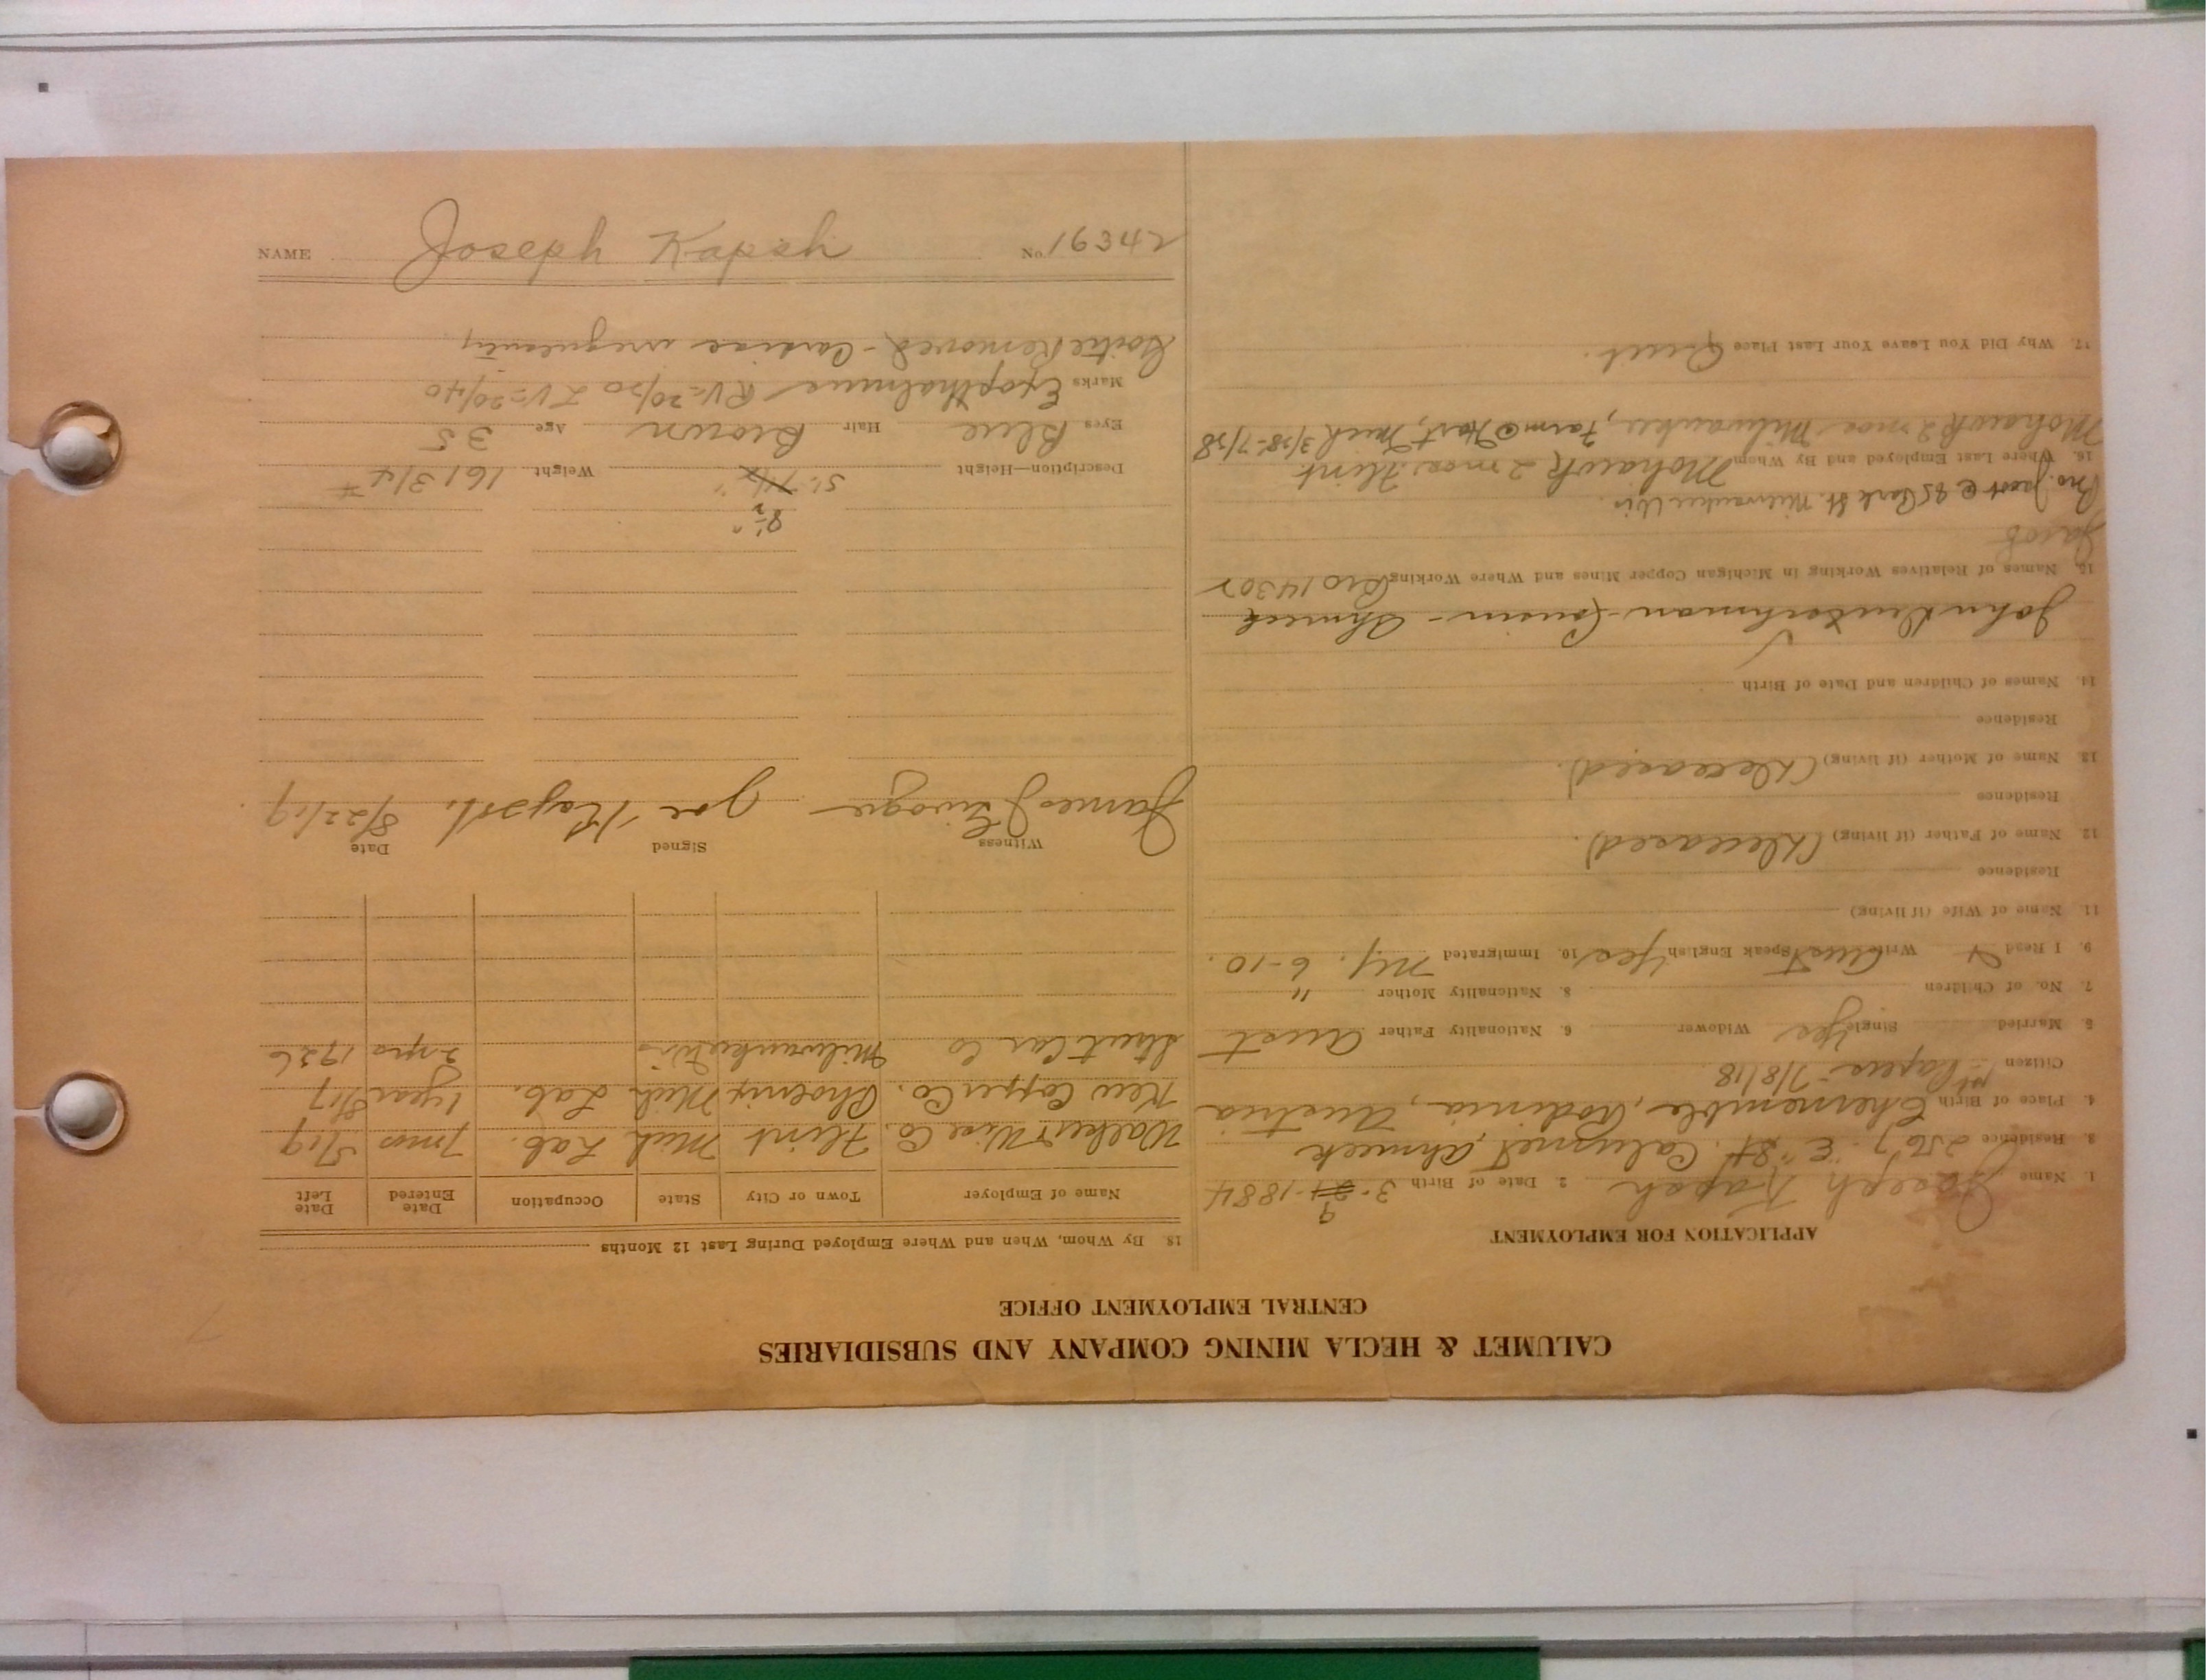 CALUMET & HECLA MINING COMPANY AND SUBSIDIARIES
CENTRAL EMPLOYMENT OFFICE
APPLICATION FOR EMPLOYMENT
1. Name Joseph Kapsh 2. Date of Birth 3-9-1884
3. Residence 2567 "E" St. Calumet, Ahmeek
4. Place of Birth Chernemble, Austria
Citizen 1st Papers - 7/8/18
5. Married Single Yes Widower 6. Nationality Father Aust
7. No. of Children 8. Nationality Mother "
9. I Read Write Aust Speak English Yes 10. Immigrated N.Y. 6-10.
11. Name of Wife (if living)
Residence
12. Name of Father (if living) (Deceased).
Residence
13. Name of Mother (if living) (Deceased).
Residence
14. Names of Children and Date of Birth
John - Cousin - Ahmeek
15. Names of Relatives Working in Michigan Copper Mines and Where Working Bro 14302
Jacob
Bro. Jacob @ 85 Park St. Milwaukee Wis.
16. Where Last Employed and By Whom Mohawk 2 mos. Flint
Mohawk 2 mos Milwaukee, Farm @ Hart, Mich 3/28-7/28
17. Why Did You Leave Your Last Place Quit.
18. By Whom, When and Where Employed During Last 12 Months
Name of Employer Town or City State Occupation Date Entered Date Left
Walker & Wise Co. Flint Mich Lab. 7 mos 5/19
Kew Copper Co. Phoenix Mich Lab. 1 year 8/17
Street Car Co Milwaukee Wis 2 yrs 1926
Witness Signed Date
James Joe Kapsh. 8/22/19
8½"
Description—Height 5' Weight 161 3/4 #
Eyes Blue Hair Brown Age 35
Marks Exopthalmus RV=20/20 LV=20/40
Goitre Removed - Cardiac irregularity
NAME Joseph Kapsh No. 16342